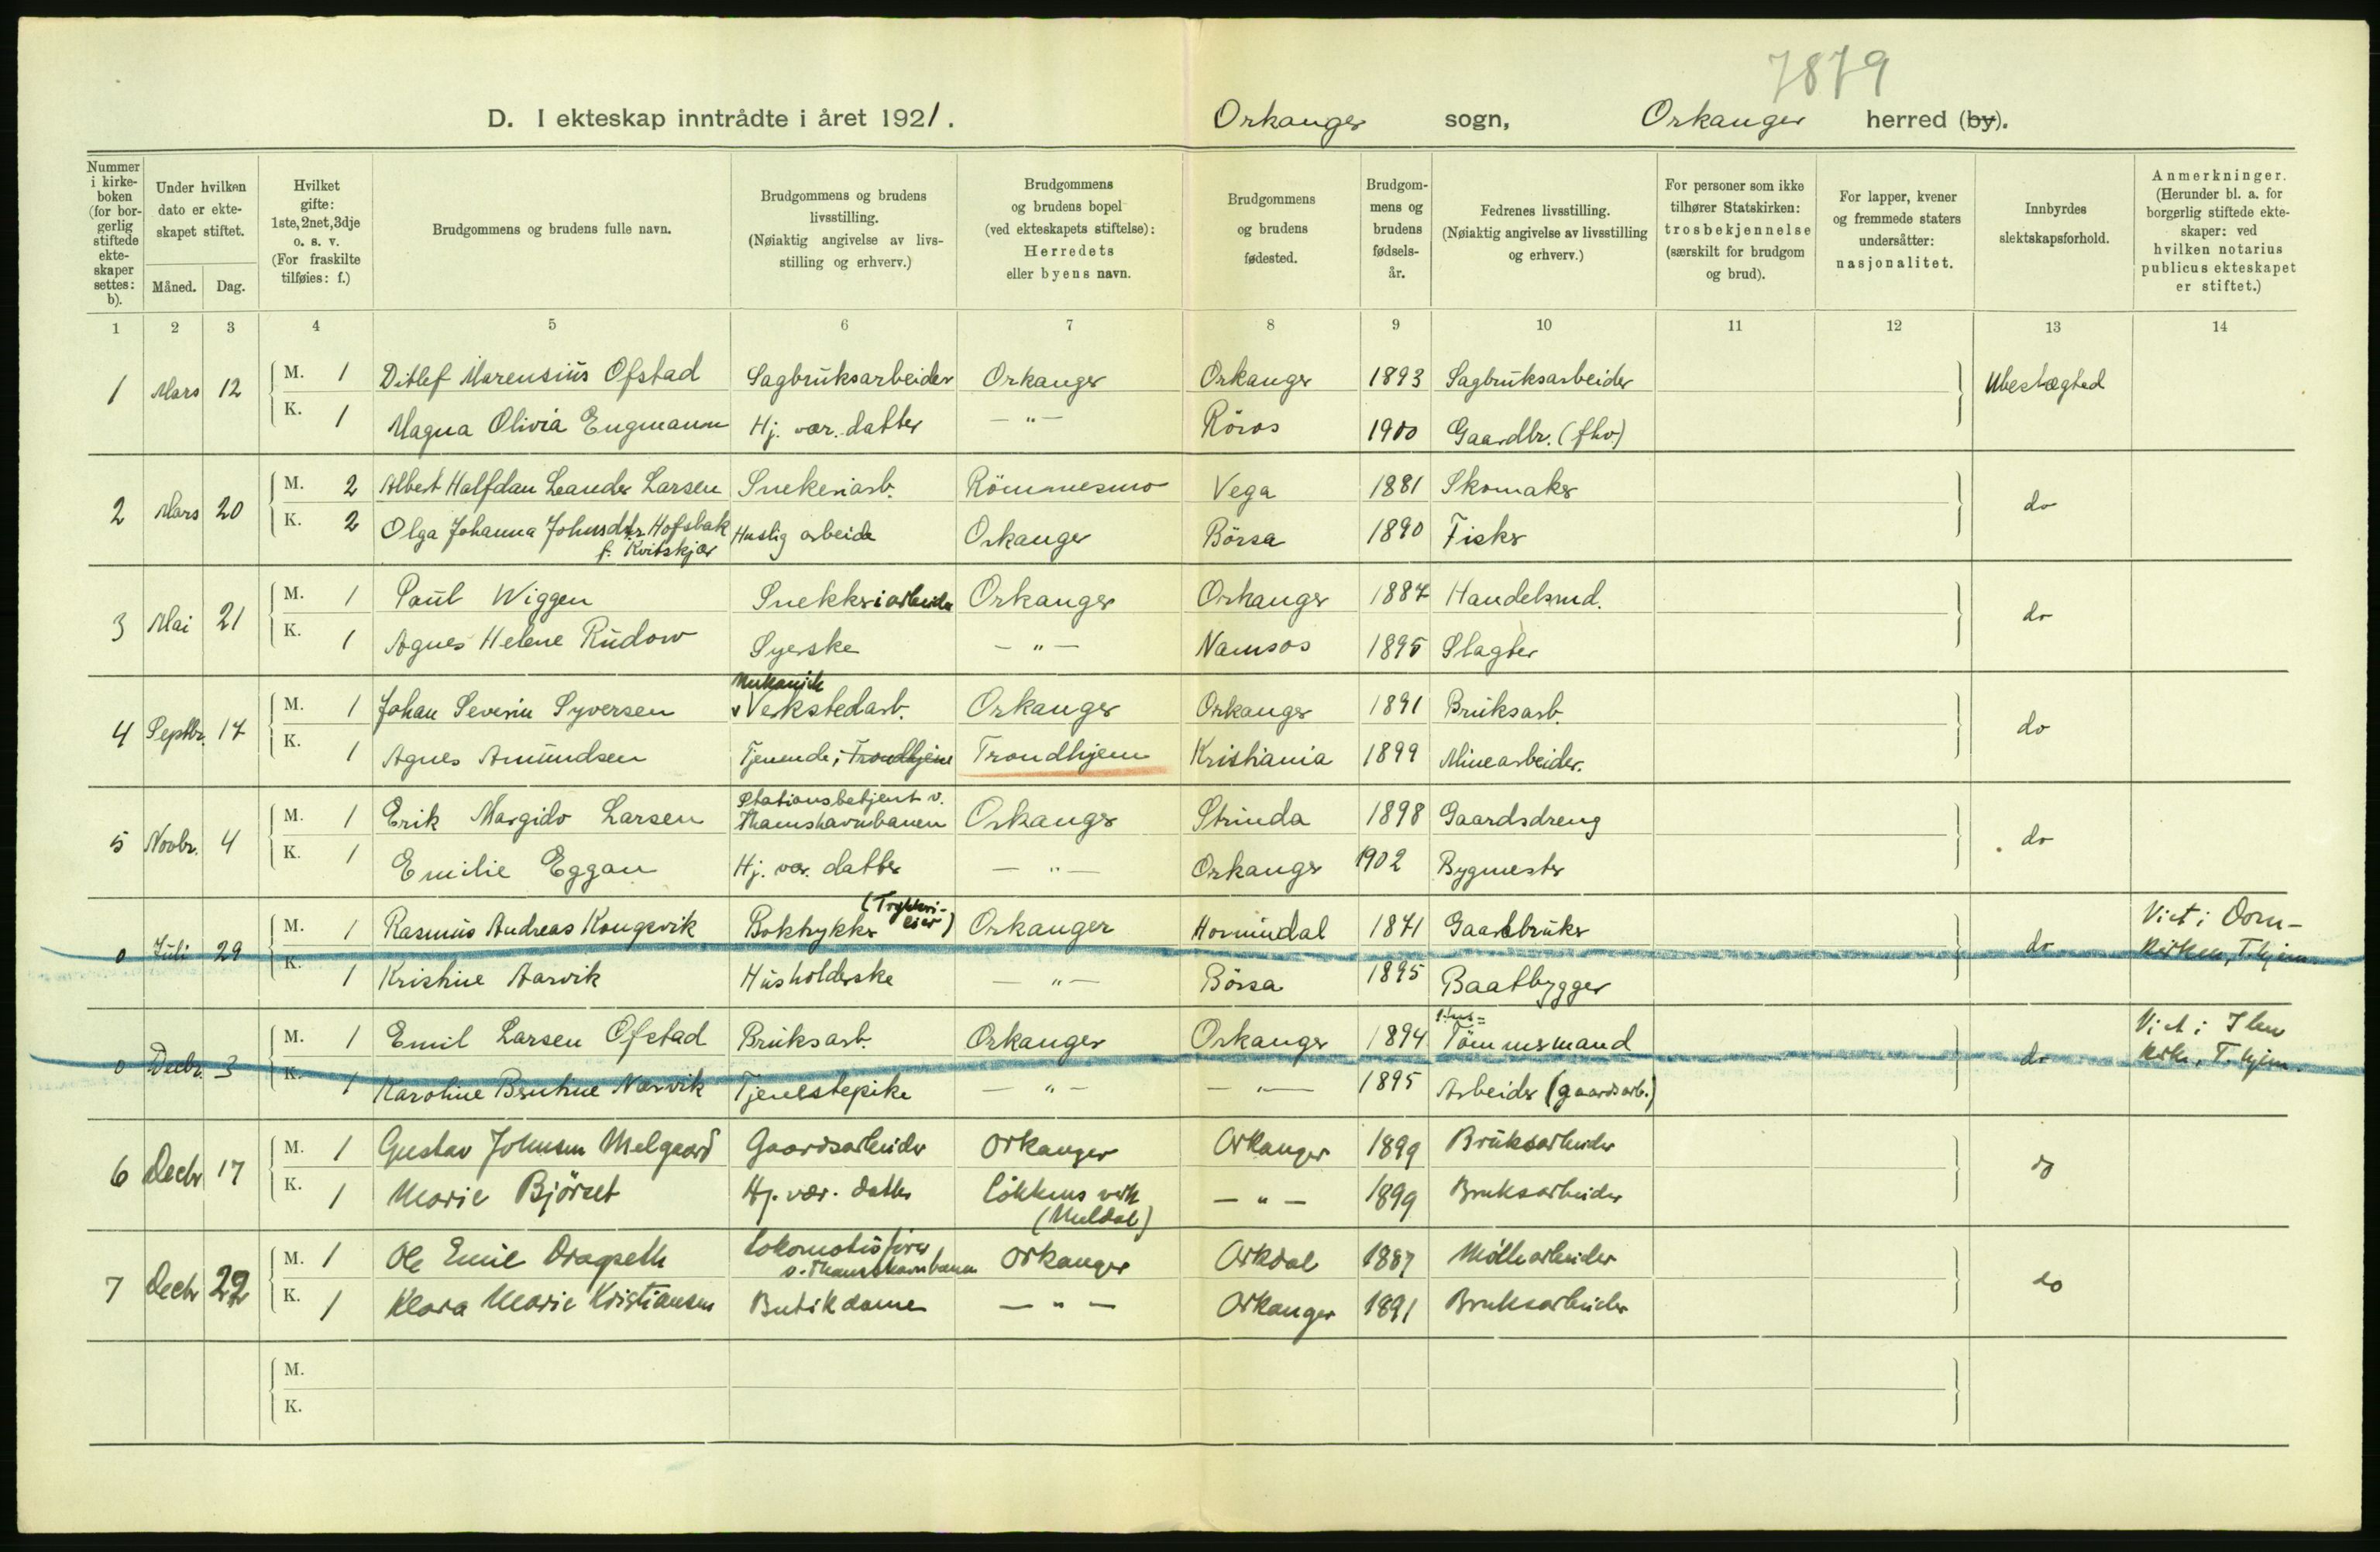 7879
D. I ekteskap inntrådte i året 1921. Orkanger sogn, Orkanger herred (by).
Nummer i kirke-boken (for bor-gerlig stiftede ekte-skaper settes: b).
Under hvilken dato er ekte-skapet stiftet.
Måned. Dag.
Hvilket gifte: 1ste, 2net, 3dje o. s. v. (For fraskilte tilføies: f.)
Brudgommens og brudens fulle navn.
Brudgommens og brudens livsstilling. (Nøiaktig angivelse av livs-stilling og erhverv.)
Brudgommens og brudens bopel (ved ekteskapets stiftelse): Herredets eller byens navn.
Brudgommens og brudens fødested.
Brudgom-mens og brudens fødsels-år.
Fedrenes livsstilling. (Nøiaktig angivelse av livsstilling og erhverv.)
For personer som ikke tilhører Statskirken: trosbekjennelse (særskilt for brudgom og brud).
For lapper, kvener og fremmede staters undersåtter: nasjonalitet.
Innbyrdes slektskapsforhold.
Anmerkninger. (Herunder bl. a. for borgerlig stiftede ekte-skaper: ved hvilken notarius publicus ekteskapet er stiftet.)
1 2 3 4 5 6 7 8 9 10 11 12 13 14
1 Mars 12 M. 1 Ditlef Marensius Ofstad Sagbruksarbeider Orkanger Orkanger 1893 Sagbruksarbeider Ubeslægted
K. 1 Magna Olivia Engmann Hj. vær. datter — " — Röros 1900 Gaardbr. (fhv.)
2 Mars 20 M. 2 Albert Halfdan Leander Larsen Snekeriarb. Römmesmo Vega 1881 Skomaker do
K. 2 Olga Johanna Johnsdtr. Hofsbak Huslig arbeide Orkanger Börsa 1890 Fisker
f. Kvitskjær
3 Mai 21 M. 1 Paul Wiggen Snekkeriarbeider Orkanger Orkanger 1887 Handelsmd. do
K. 1 Agnes Helene Rudow Syerske — " — Namsos 1895 Slagter
Mekanisk
4 Septbr. 17 M. 1 Johan Severin Syversen Verkstedarb. Orkanger Orkanger 1891 Bruksarb. do
K. 1 Agnes Amundsen Tjenende i Trondhjem Trondhjem Kristiania 1899 Minearbeider.
Stationsbetjent v.
5 Novbr. 4 M. 1 Erik Margido Larsen Thamshavnbanen Orkanger Strinda 1898 Gaardsdreng do
K. 1 Emilie Eggan Hj. vær. datter — " — Orkanger 1902 Bygmester
0 Juli 29 M. 1 Rasmus Andreas Kongsvik Boktrykker (Trykkeri-eier) Orkanger Hornindal 1871 Gaardbruker do Viet i Dom-kirken, T.hjem
K. 1 Kristine Aarvik Husholderske — " — Börsa 1895 Baatbygger
0 Decbr. 3 M. 1 Emil Larsen Ofstad Bruksarb. Orkanger Orkanger 1894 Tömmermand do Viet i Ilen kirke, T.hjem.
K. 1 Karoline Berntine Nærvik Tjenestepike — " — — " — 1895 Arbeider (gaardsarb.)
6 Decbr 17 M. 1 Gustav Johnsen Melgaard Gaardsarbeider Orkanger Orkanger 1899 Bruksarbeider do
K. 1 Marie Björset Hj. vær. datter Lökkens verk — " — 1899 Bruksarbeider
(Meldal)
7 Decbr 22 M. 1 Ole Emil Dragseth Lokomotivfører Orkanger Orkdal 1887 Møllearbeider do
v. Thamshavnbanen
K. 1 Klara Marie Kristiansen Butikdame — " — Orkanger 1891 Bruksarbeider
M.
K.